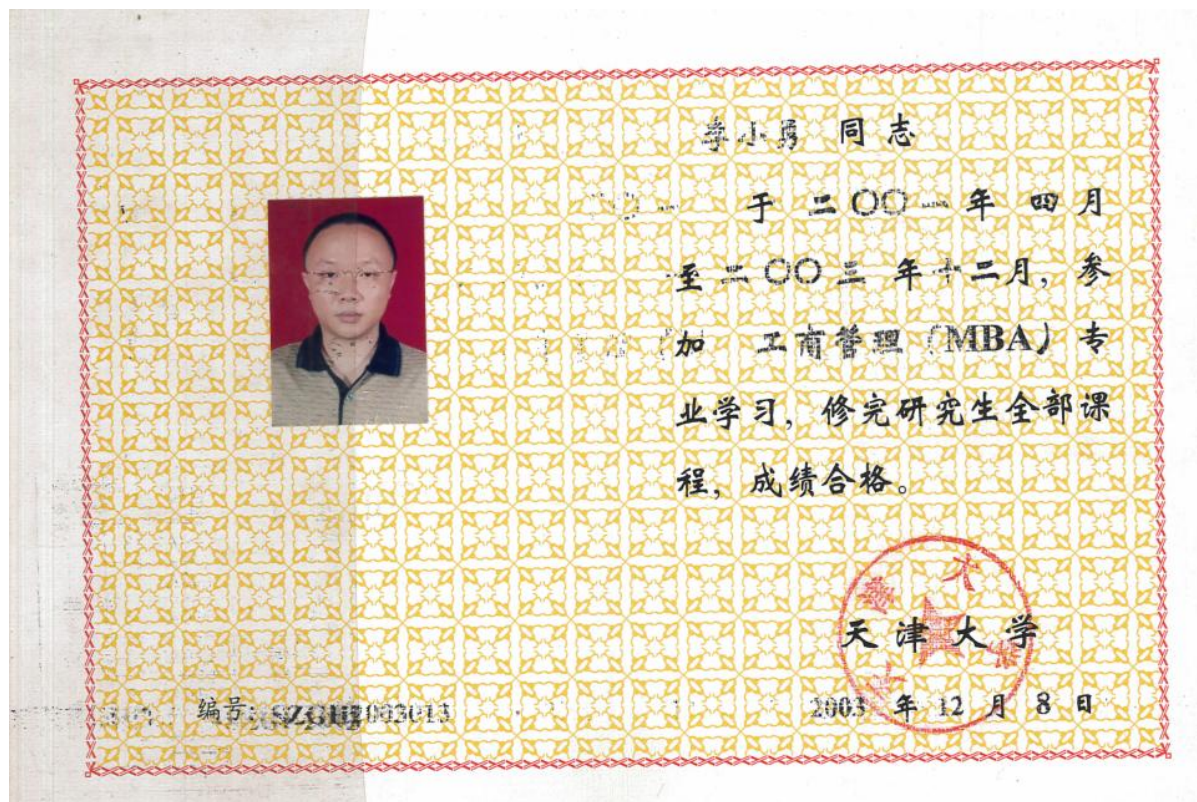 李小勇 同志
于 二〇〇一年 四月
至二〇〇三 年十二月，参
加 工商管理（MBA）专
业学习，修完研究生全部课
程，成绩合格。
天津大学
天津大学
2003 年 12 月 8 日
编号: